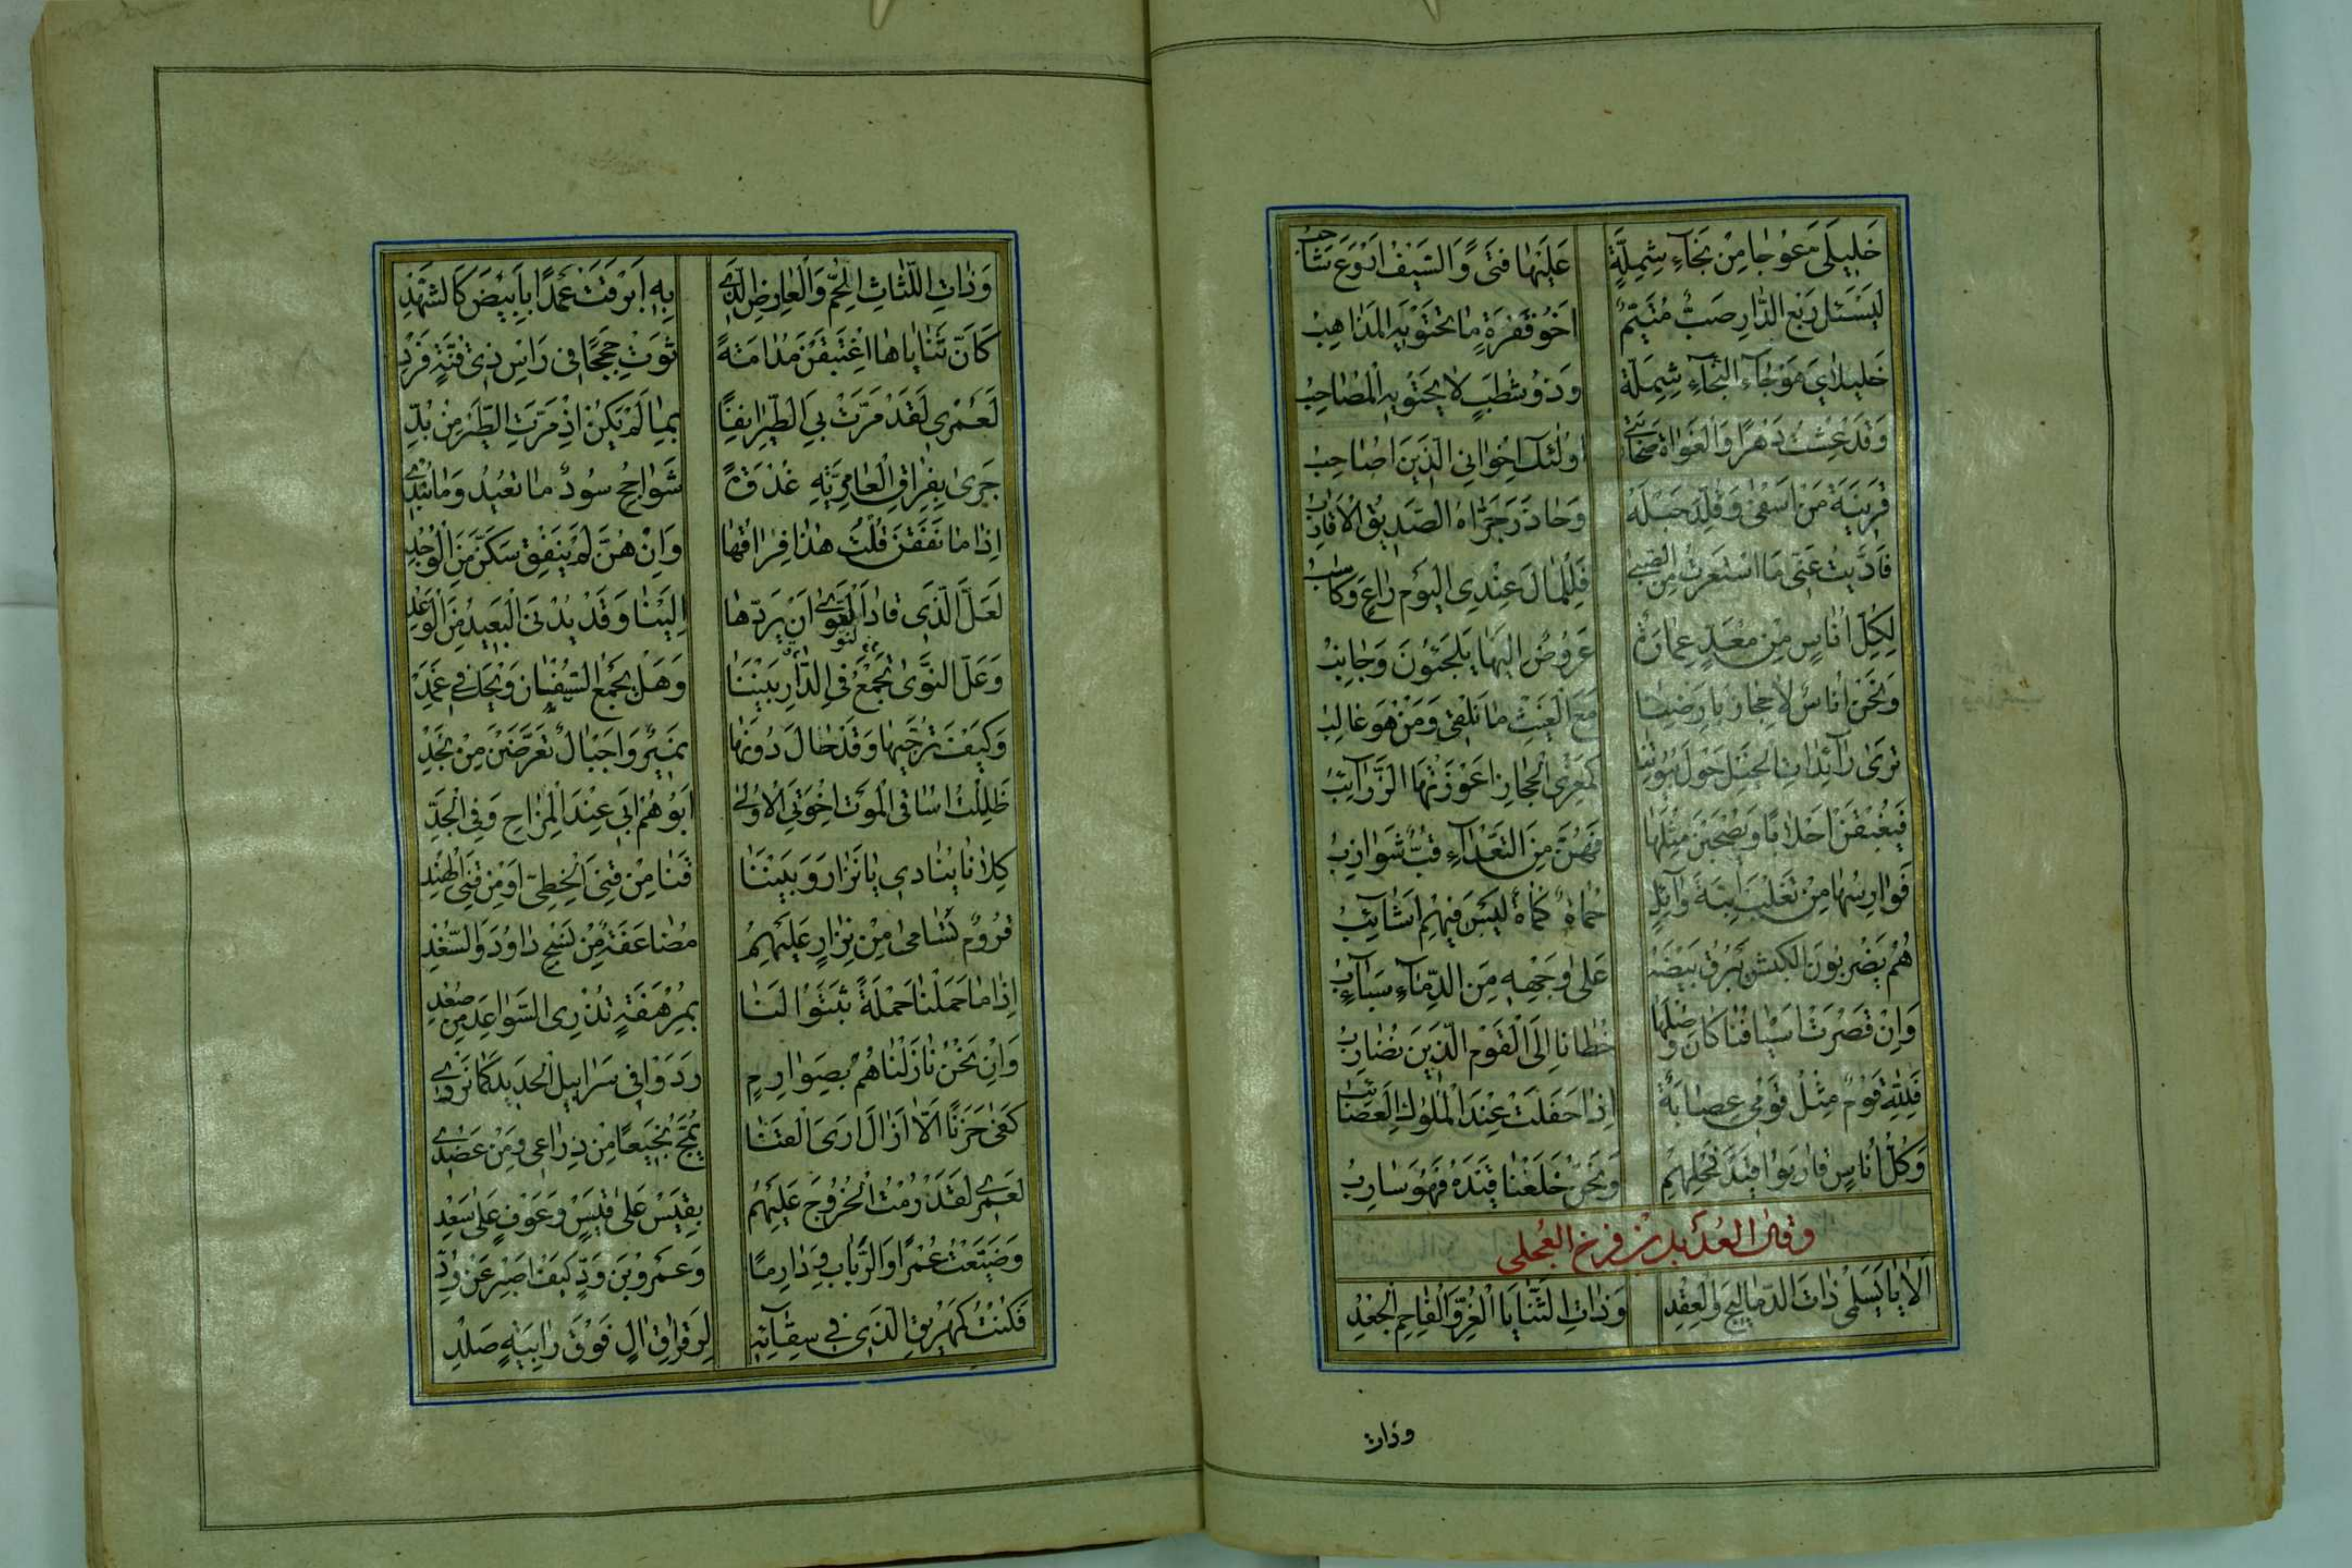 خَلِيلَى مَعَوْجَا مِنْ نَجَاءِ شِمِلَّةٍ عَلَيْهَا فَتًى وَالسَّيْفُ اَرْوَعَ شَاحِبُ
لَيَسْئَل رَبْعَ الدَّارِ صَبٌّ مُتَيَّمٌ اَخُو قَفْرَةٍ مَا تَحْتَوِيهِ الْمَذَاهِبُ
خَلِيلَاىَ هَوْجَاءُ النَّجَاءِ شِمِلَّةٌ وَذُو شُطَبٍ لَا يَحْتَوِيهِ الْمُصَاحِبُ
وَقَدْ عِشْتُ دَهْرًا وَالْغَوَاةُ صَحَابَتِى اُولٰئِكَ اِخْوَانِى الَّذِينَ اُصَاحِبُ
قَرِينَةَ مَنْ اَسْفَى وَقُلِّدَ حَبْلَهُ وَحَاذَرَ جَرَّاهُ الصَّدِيقُ الْاَقَارِبُ
فَاَدَّيْتُ عَنِّى مَا اسْتَعَرْتُ مِنَ الصِّبَى فَلِلْمَالَ عِنْدِى الْيَوْمَ رَاعٍ وَكَاسِبُ
لِكُلِّ اُنَاسٍ مِنْ مَعَدٍّ عِمَارَةٌ عَرُوضٌ اِلَيْهَا يَلْجَئُونَ وَجَانِبُ
وَنَحْنُ اُنَاسٌ لَا حِجَازَ بِاَرْضِنَا مَعَ الْغَيْثِ مَا نُلْقَى وَمَنْ هُوَ غَالِبُ
تَرَى رَائِدَاتِ الْخَيْلِ حَوْلَ بُيُوتِنَا كَمِعْزَى الْحِجَازِ اَعْوَزَتْهَا الزَّرَائِبُ
فَيُغْبَقْنَ اَحْلَابًا وَيُصْبَحْنَ مِثْلَهَا فَهُنَّ مِنَ التَّعْدَاءِ قُبٌّ شَوَازِبُ
فَوَارِسُهَا مِنْ تَغْلِبَ ابْنَةِ وَائِلٍ حُمَاةٌ كُمَاةٌ لَيْسَ فِيهِمْ اَشَائِبُ
هُمْ يَضْرِبُونَ الْكَبْشَ يَبْرُقُ بَيْضُهُ عَلَى وَجْهِهِ مِنَ الدِّمَاءِ سَبَائِبُ
وَاِنْ قَصُرَتْ اَسْيَافُنَا كَانَ وَصْلُهَا خُطَانَا اِلَى الْقَوْمِ الَّذِينَ نُضَارِبُ
فَلِلّٰهِ قَوْمٌ مِثْلُ قَوْمِى عِصَابَةٌ اِذَا حَفَلَتْ عِنْدَ الْمُلُوكِ الْعَصَائِبُ
وَكُلُّ اُنَاسٍ قَارَبُوا قَيْدَ فَحْلِهِمْ وَنَحْنُ خَلَعْنَا قَيْدَهُ فَهُوَ سَارِبُ
وقال العُدَيل بن فرخ العجلى
اَلَا يَا اسْلَمِى ذَاتَ الدَّمَالِيجِ وَالْعِقْدِ وَذَاتِ الثَّنَايَا الْغُرِّ وَالْفَاحِمِ الْجَعْدِ
وذات
وَذَاتِ اللِّثَاتِ الْحُمِّ وَالْعَارِضِ الَّذِى بِهِ اَبْرَقَتْ عَمْدًا بِاَبْيَضَ كَالشَّهْدِ
كَاَنَّ ثَنَايَاهَا اغْتَبَقْنَ مُدَامَةً ثَوَتْ حِجَجًا فِى رَاْسِ ذِى قُنَّةٍ فَرْدِ
لَعَمْرِى لَقَدْ مَرَّتْ بِىَ الطَّيْرُ اٰنِفًا بِمَا لَمْ يَكُنْ اِذْ مَرَّتِ الطَّيْرُ مِنْ بُدِّ
جَرَى بِفِرَاقِ الْعَامِرِيَّةِ غُدْوَةً شَوَاحِجُ سُودٌ مَا تُعِيدُ وَمَا تُبْدِى
اِذَا مَا نَغَقْنَ قُلْتُ هٰذَا فِرَاقُهَا وَاِنْ هُنَّ لَمْ يَنْغِقْ سَكَنَّ مِنَ الْوَجْدِ
لَعَلَّ الَّذِى قَادَ النَّوَى اَنْ يَرُدَّهَا اِلَيْنَا وَقَدْ يُدْنَى الْبَعِيدُ مِنَ الْوَعْدِ
وَعَلَّ النَّوَى تَجْمَعُ فِى الدَّارِ بَيْنَنَا وَهَلْ يُجْمَعُ السَّيْفَانِ وَيْحَكَ فِى غِمْدِ
وَكَيْفَ تُرَجِّيهَا وَقَدْ حَالَ دُونَهَا نُمَيْرٌ وَاَجْبَالٌ تَعَرَّضْنَ مِنْ نَجْدِ
ظَلِلْتُ اُسَاقِى الْمَوْتَ اِخْوَتِىَ الْاُولٰى اَبُوهُمْ اَبِى عِنْدَ الْمِزَاحِ وَفِى الْجِدِّ
كِلَانَا يُنَادِى يَا نِزَارُ وَبَيْنَنَا قَنًا مِنْ قَنَى الْخَطِّىِّ اَوْ مِنْ قَنَى الْهِنْدِ
قُرُومٌ تَسَامَى مِنْ نِزَارٍ عَلَيْهِمُ مُضَاعَفَةٌ مِنْ نَسْجِ دَاوُدَ وَالسُّغْدِ
اِذَا مَا حَمَلْنَا حَمْلَةً ثَبَتُوا لَنَا بِمُرْهَفَةٍ تُذْرِى السَّوَاعِدَ مِنْ صُعْدِ
وَاِنْ نَحْنُ نَازَلْنَاهُمْ بِصَوَارِمٍ رَدَوْا فِى سَرَابِيلِ الْحَدِيدِ كَمَا نَرْدِى
كَفَى حَزَنًا اَلَّا اَزَالَ اَرَى الْقَنَا يَمُجُّ نَجِيعًا مِنْ ذِرَاعِى وَمِنْ عَضُدِى
لَعَمْرِى لَقَدْ رُمْتُ الْخُرُوجَ عَلَيْهِمُ بِقَيْسٍ عَلَى قَيْسٍ وَعَوْفٍ عَلَى سَعْدِ
وَضَيَّعْتُ عَمْرًا وَالرِّبَابَ وَدَارِمًا وَعَمْرَو بْنَ وُدٍّ كَيْفَ اَصْبِرُ عَنْ وُدِّ
فَكُنْتُ كَمُهْرِيقِ الَّذِى فِى سِقَائِهِ لِرَقْرَاقِ اٰلٍ فَوْقَ رَابِيَةٍ صَلْدِ